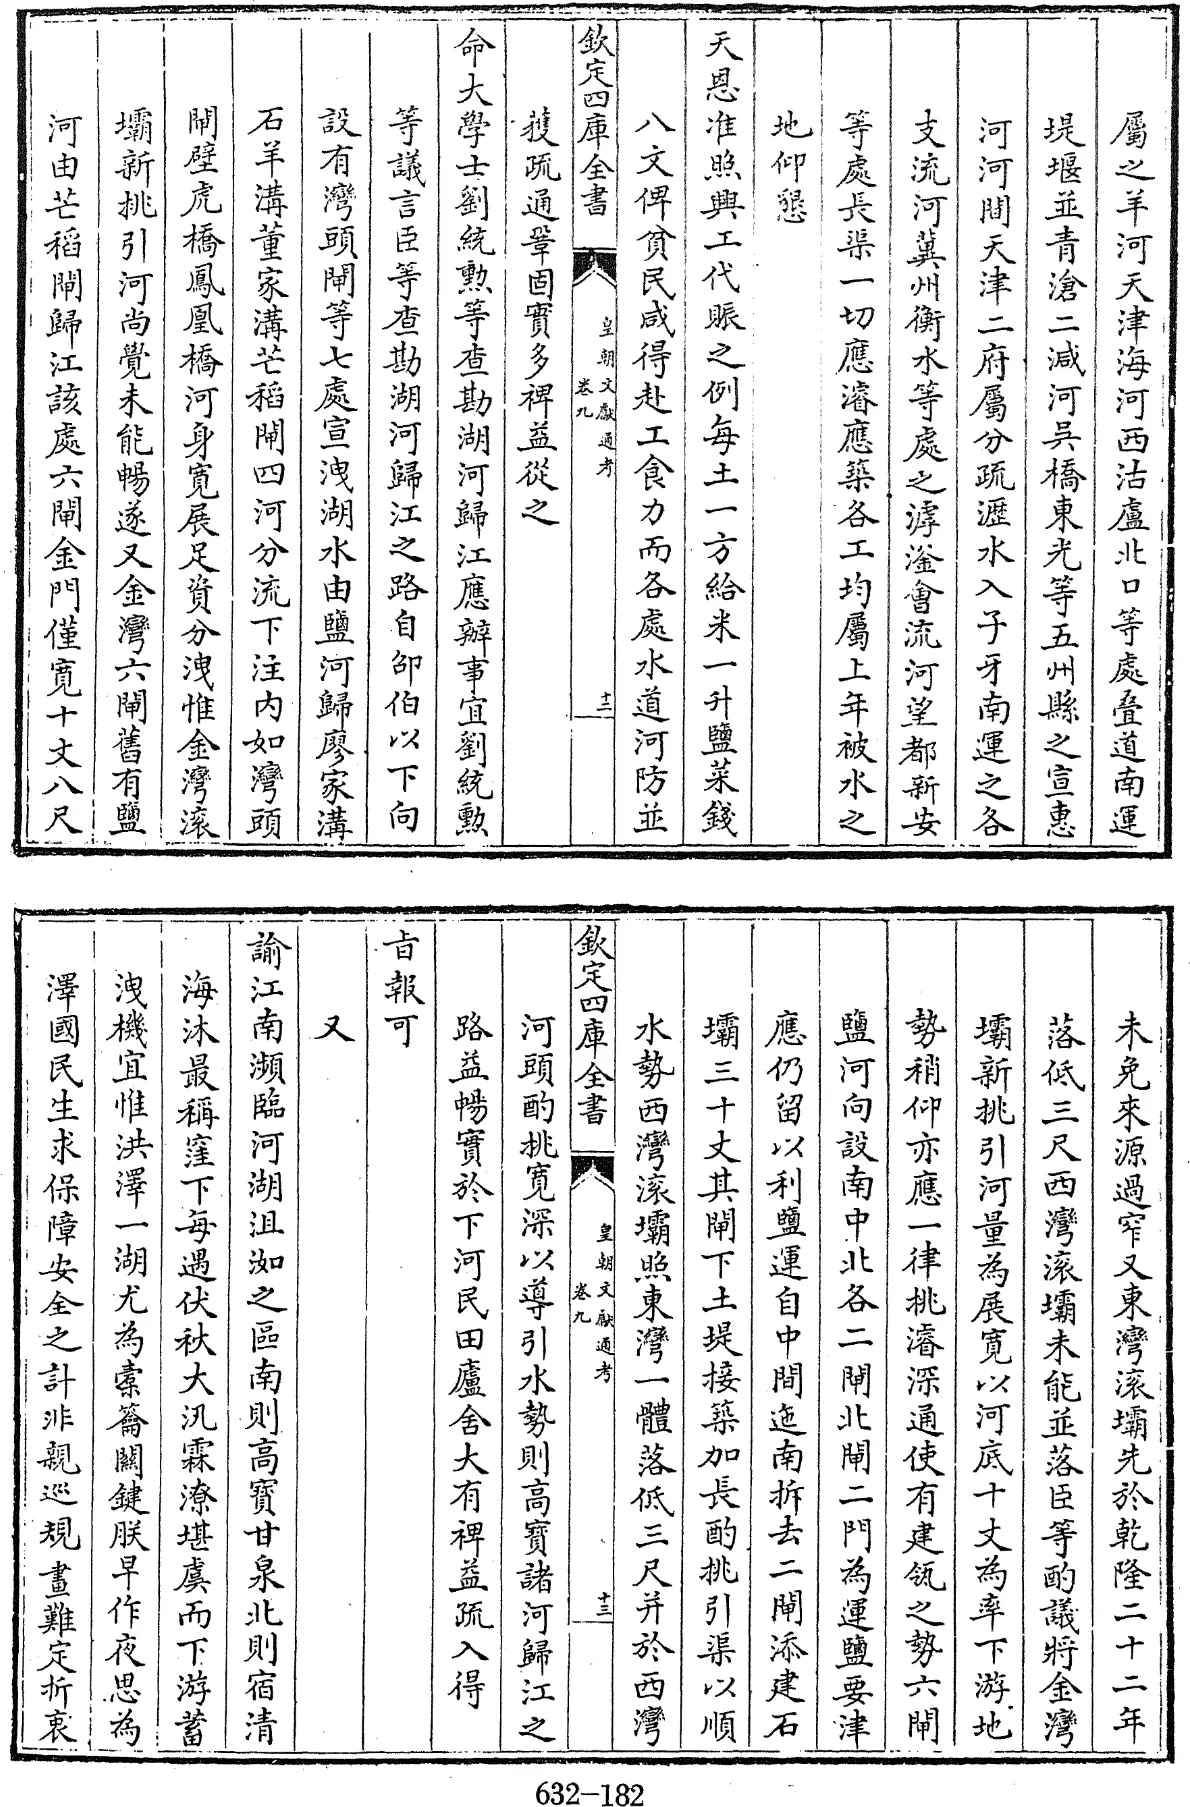 屬之羊河天津海河西沽盧北口等處疊道南運
堤堰並青滄二減河吳橋東光等五州縣之宣惠
河河間天津二府屬分疏瀝水入子牙南運之各
支流河冀州衡水等處之滹滏會流河望都新安
等處長渠一切應濬應築各工均屬上年被水之
地仰懇
天恩准照興工代賑之例每土一方給米一升鹽菜錢
八文俾貧民咸得赴工食力而各處水道河防並
欽定四庫全書
皇朝文獻通考
卷九
十二
獲疏通鞏固實多裨益從之
命大學士劉統勲等查勘湖河歸江應辦事宜劉統勲
等議言臣等查勘湖河歸江之路自邵伯以下向
設有灣頭閘等七處宣洩湖水由鹽河歸廖家溝
石羊溝董家溝芒稻閘四河分流下注内如灣頭
閘壁虎橋鳳凰橋河身寬展足資分洩惟金灣滚
壩新挑引河尚覺未能暢遂又金灣六閘舊有鹽
河由芒稻閘歸江該處六閘金門僅寛十丈八尺
未免來源過窄又東灣滚壩先於乾隆二十二年
落低三尺西灣滚壩未能並落臣等酌議將金灣
壩新挑引河量為展寛以河底十丈為率下游地
勢稍仰亦應一律挑濬深通使有建瓴之勢六閘
鹽河向設南中北各二閘北閘二門為運鹽要津
應仍留以利鹽運自中間迤南拆去二閘添建石
壩三十丈其閘下土堤接築加長酌挑引渠以順
水勢西灣滚壩照東灣一體落低三尺并於西灣
欽定四庫全書
皇朝文獻通考
卷九
十三
河頭酌挑寛深以導引水勢則高寶諸河歸江之
路益暢實於下河民田廬舍大有裨益疏入得
㫖報可
又
諭江南瀕臨河湖沮洳之區南則高寶甘泉北則宿清
海沐最稱窪下每遇伏秋大汛霖潦堪虞而下游蓄
洩機宜惟洪澤一湖尤為槖籥關鍵朕早作夜思為
澤國民生求保障安全之計非親巡規畫難定折衷
632-182